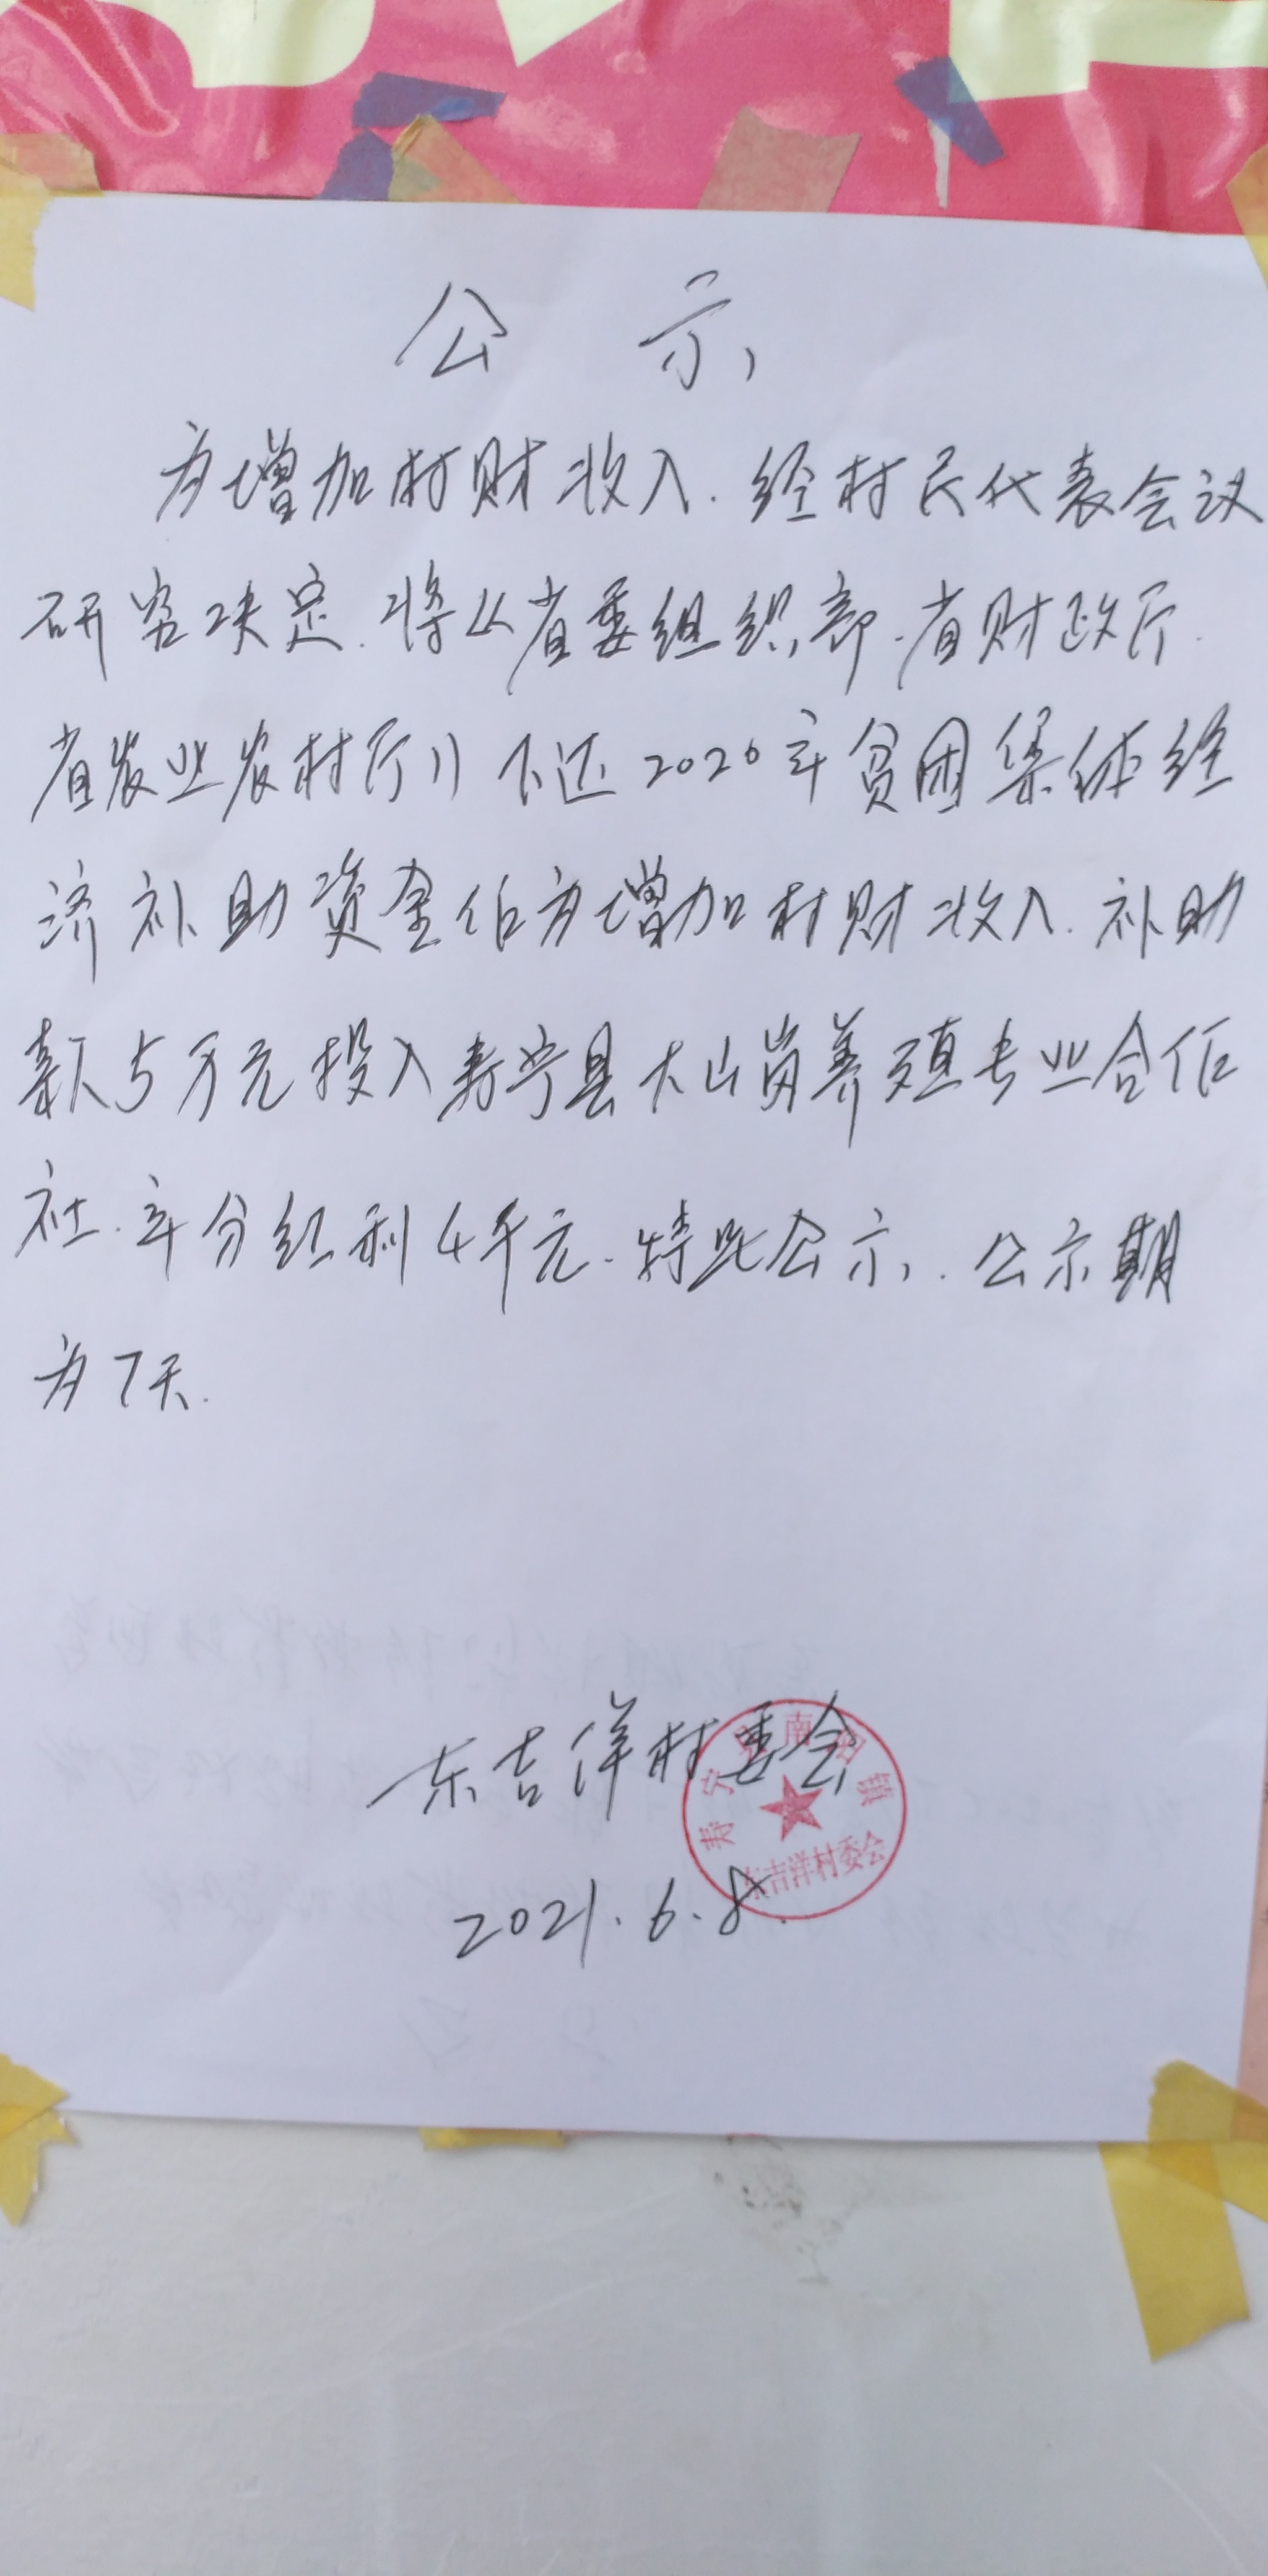 公示
为增加村财收入.经村民代表会议
研究决定.将《省委组织部.省财政厅.
省农业农村厅》下达2020年贫困集体经
济补助资金作为增加村财收入.补助
款5万元投入寿宁县大山岗养殖专业合作
社.年分红利4千元.特此公示.公示期
为7天.
东吉洋村委会
寿宁县南阳镇
东吉洋村委会
2021.6.8.